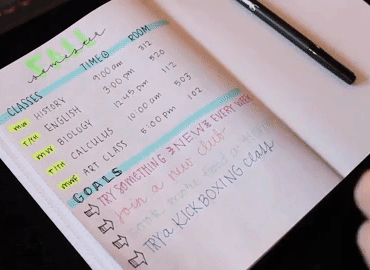 FALL
semester
CLASSES TIME ROOM
M/W HISTORY 9:00 am 312
T/TH ENGLISH 3:00 pm 520
M/W BIOLOGY 12:45 pm 112
T/TH CALCULUS 10:00 am 503
MWF ART CLASS 5:00 pm 102
GOALS
TRY SOMETHING NEW EVERY WEEK
join a new club
TRY a KICKBOXING class